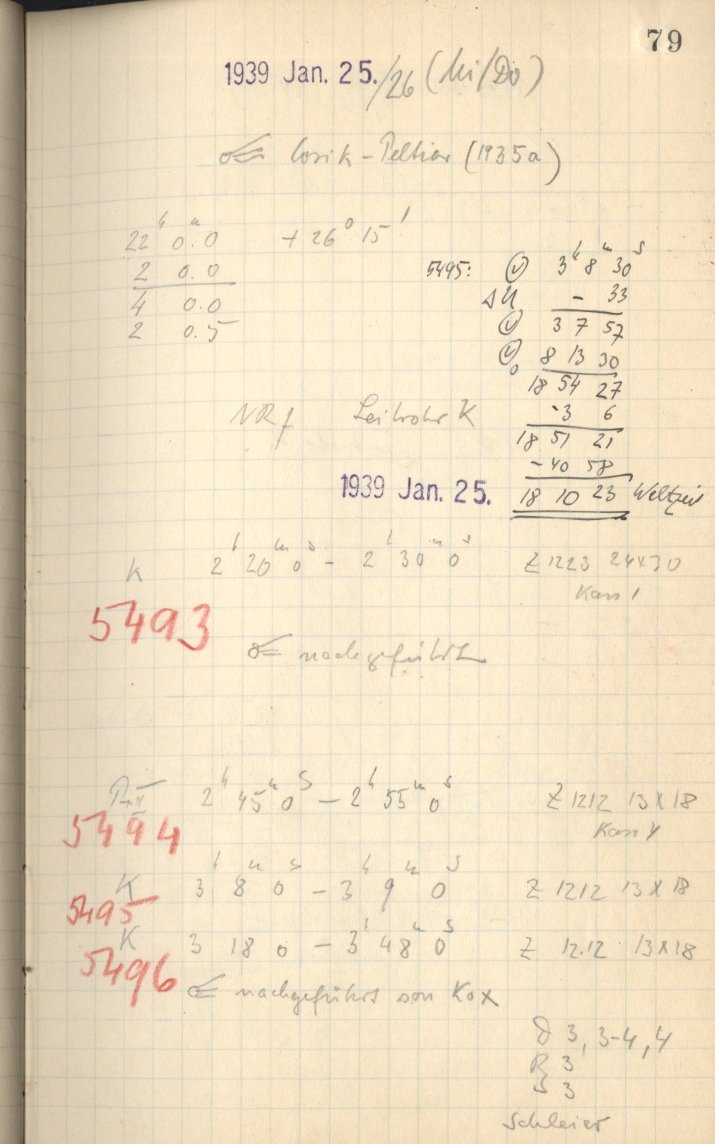 79
1939 Jan. 25./26 (Mi/Do)
Cosik-Peltier (1935a)
22ʰ 0ᵐ.0 + 26° 15'
2 0.0
4 0.0
2 0.5
5495: 3ʰ 8ᵐ 30ˢ
ΔU - 33
3 7 57
8 13 30
18 54 27
-3 6
18 51 21
-40 58
18 10 23 Weltzeit
NRf Leitrohr K
1939 Jan. 25.
K 2ʰ 20ᵐ 0ˢ - 2ʰ 30ᵐ 0ˢ Z 1223 24x30
5493
nachgeführt
2ʰ 45ᵐ 0ˢ - 2ʰ 55ᵐ 0ˢ Z 1212 13x18
5494
K 3ʰ 8ᵐ 0ˢ - 3ʰ 9ᵐ 0ˢ Z 1212 13x18
5495
K 3 18 0 - 3ʰ 48ᵐ 0ˢ Z 12.12 13x18
5496
nachgeführt von Kox
D 3, 3-4, 4
R 3
S 3
Schleier